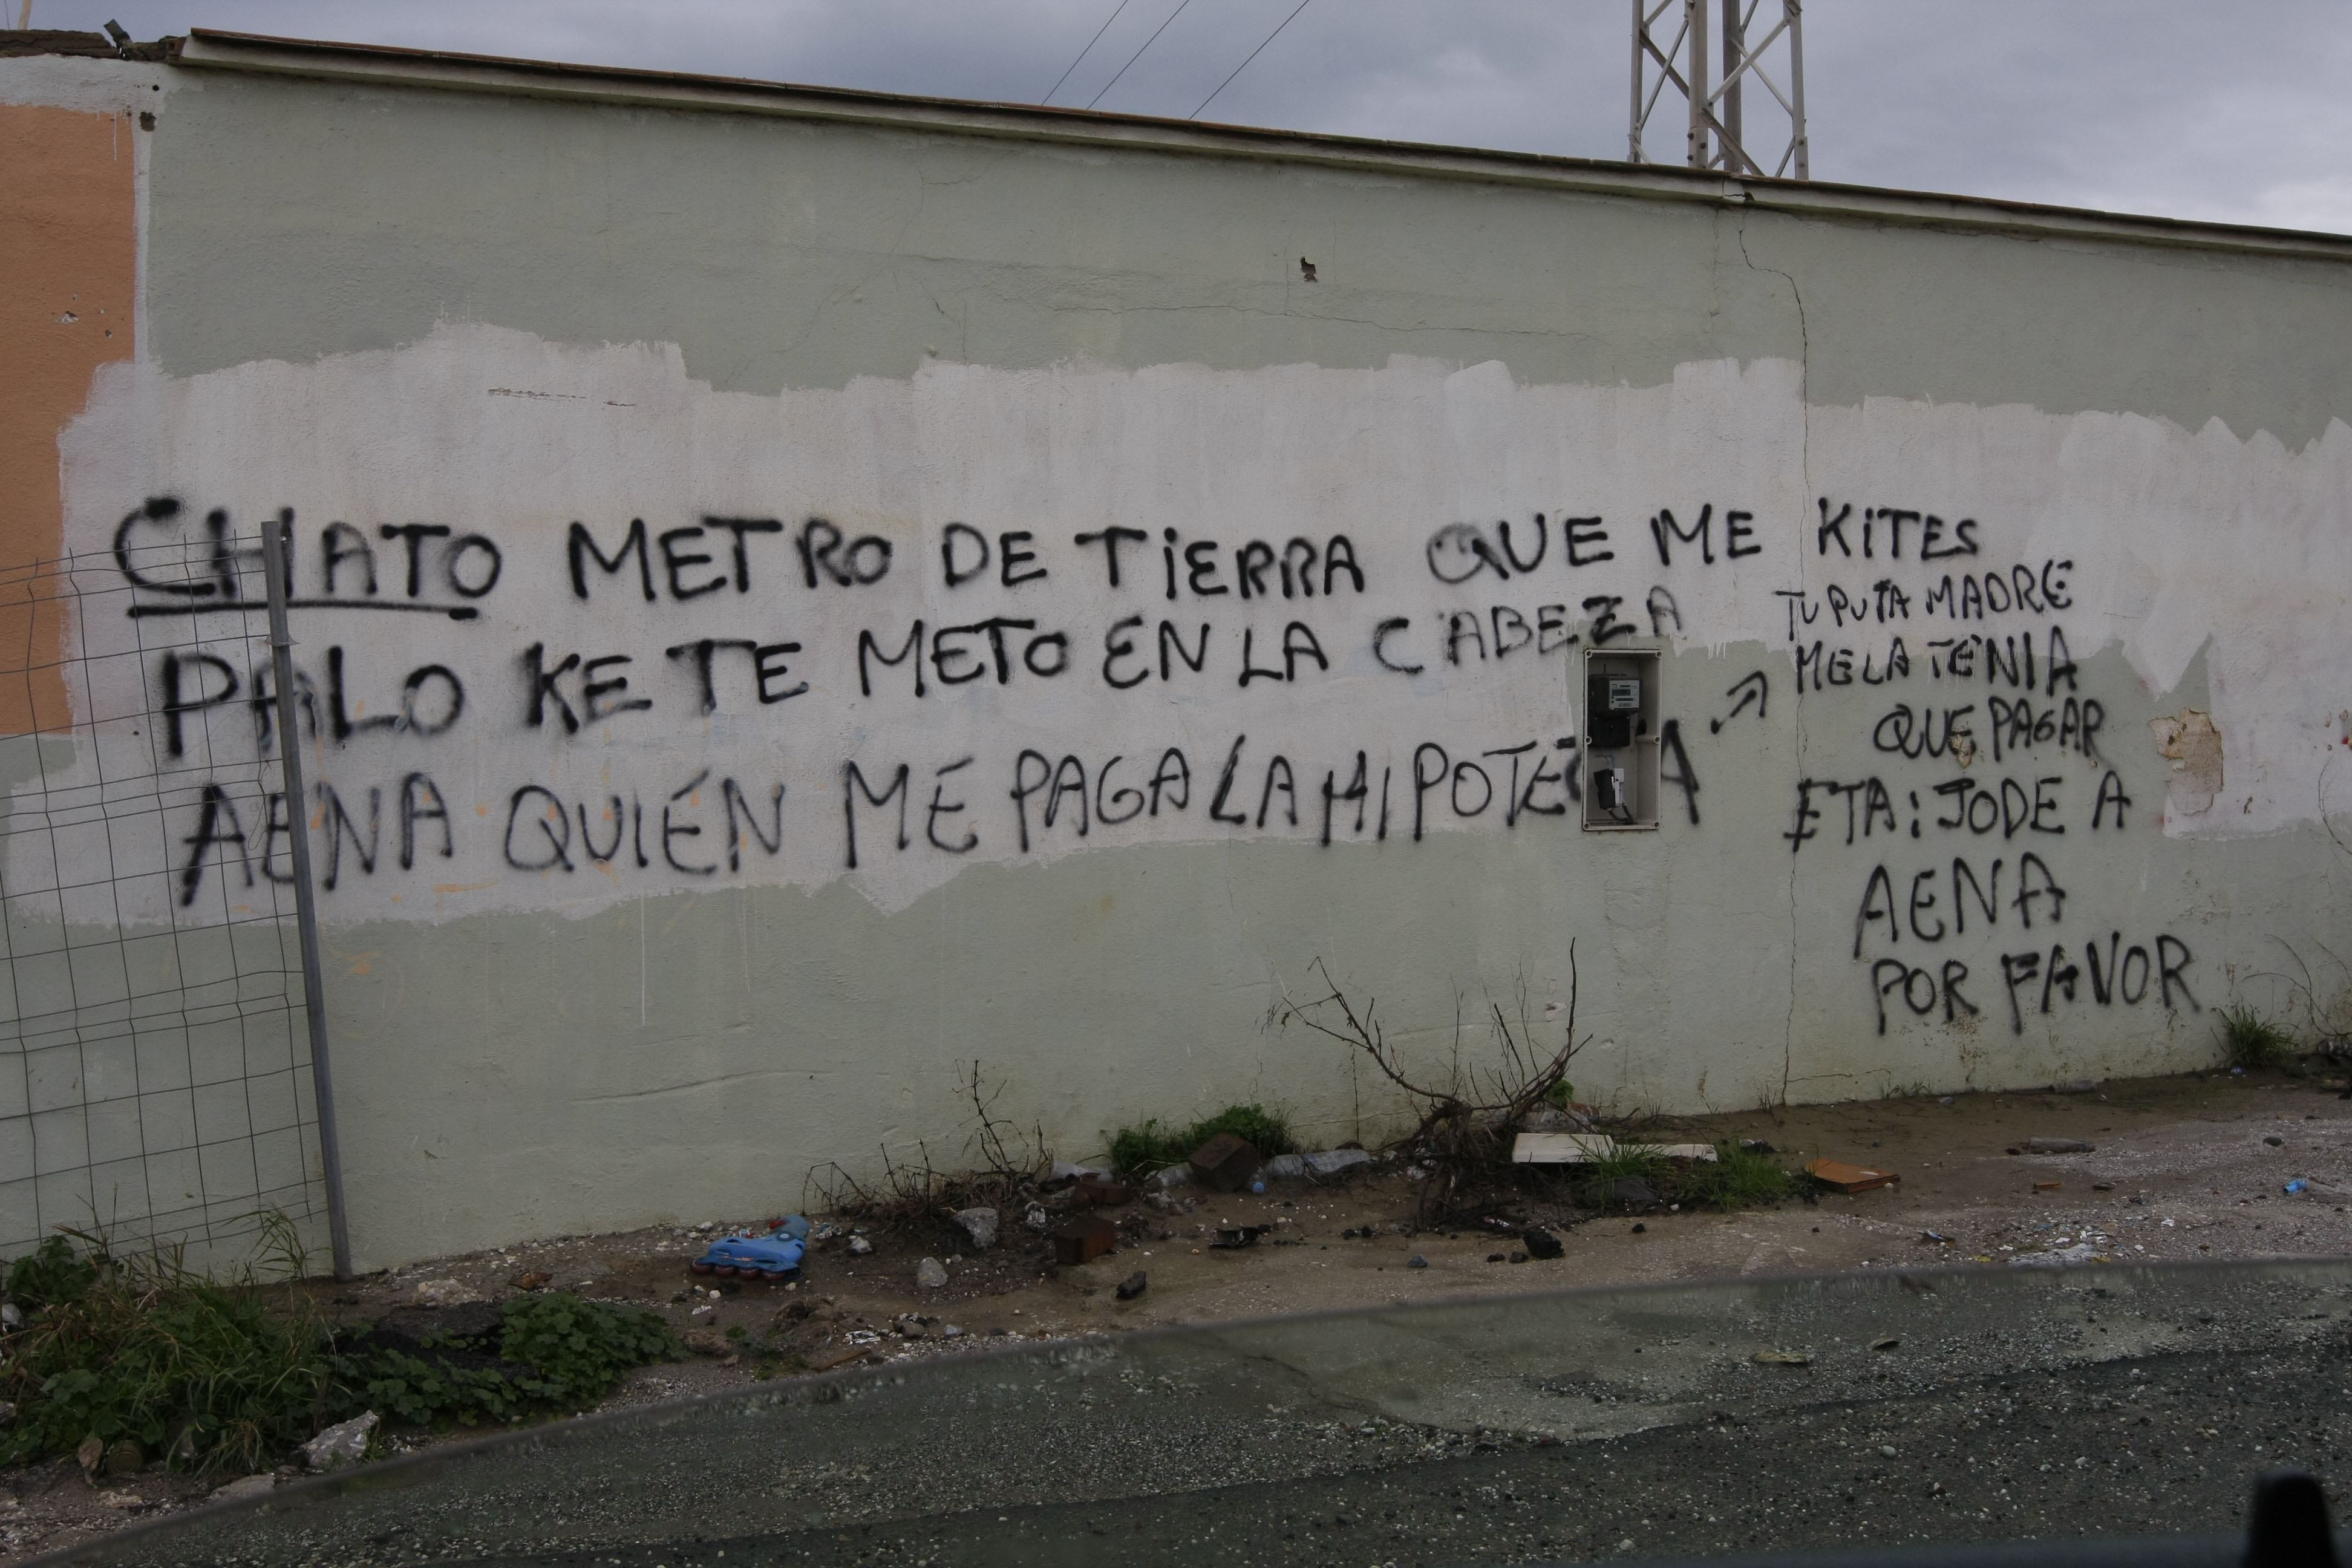 CHATO METRO DE TIERRA QUE ME KITES
PALO KE TE METO EN LA CABEZA
AENA QUIÉN ME PAGA LA HIPOTECA
TU PUTA MADRE
ME LA TENIA
QUE PAGAR
ETA: JODE A
AENA
POR FAVOR